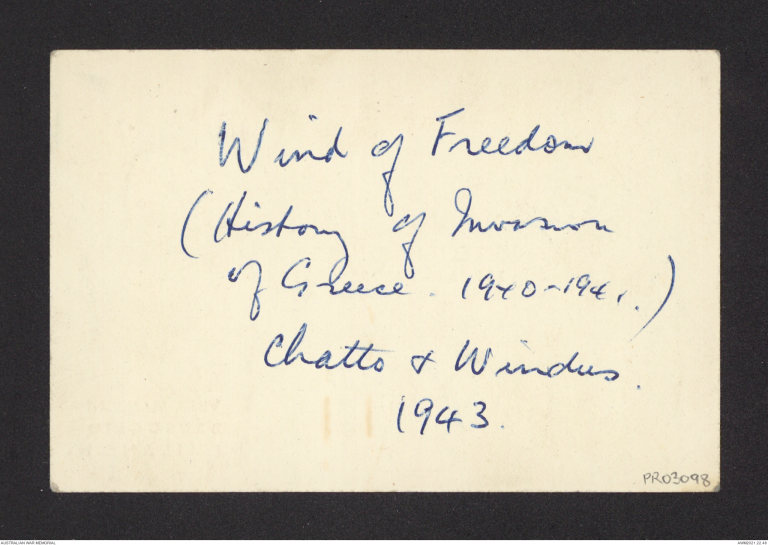 Wind of Freedom
(History of Invasion
of Greece. 1940-1941.)
Chatto & Windus.
1943.
PR03098
AUSTRALIAN WAR MEMORIAL
AWM2021.22.48